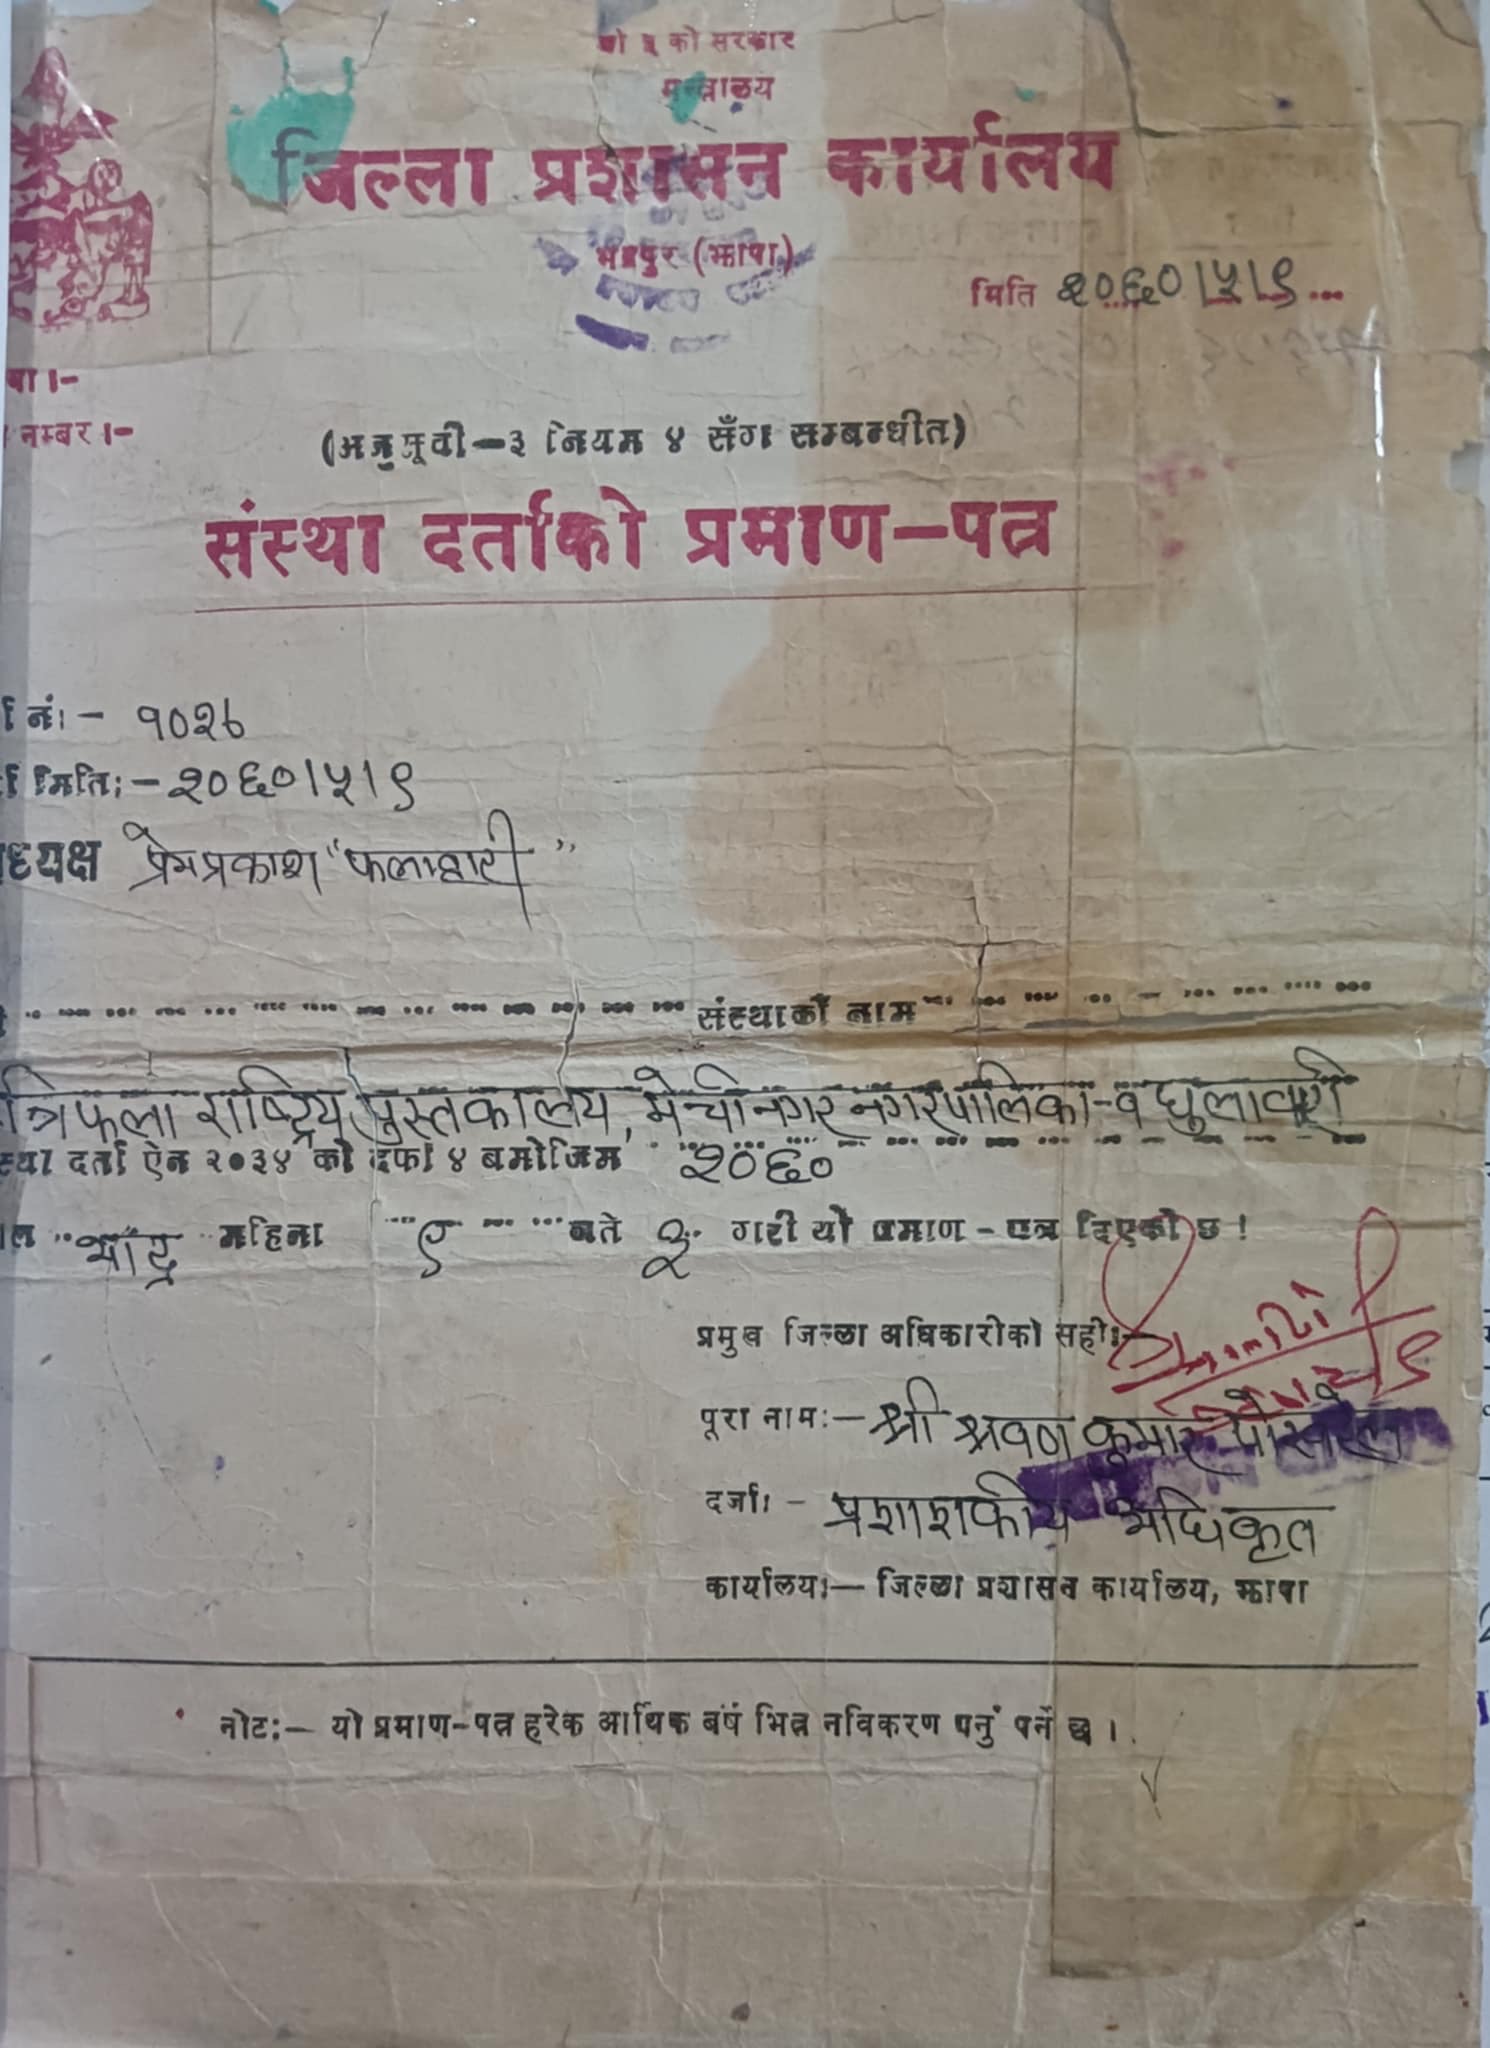 को सरकार
जिल्ला प्रशासन कार्यालय
भद्रपुर (झापा)
मिति २०६०।५।९
नम्बर।-
(अनुसूची-३ नियम ४ सँग सम्बन्धीत)
संस्था दर्ताको प्रमाण-पत्र
नं।- १०२८
मिति:- २०६०।५।९
ध्यक्ष प्रेमप्रकाश "फलाहारी"
संस्थाको नाम
त्रिफला राष्ट्रिय पुस्तकालय, मेचीनगर नगरपालिका-
स्था दर्ता ऐन २०३४ को दफा ४ बमोजिम २०६०
भाद्र महिना ९ गते गरी यो प्रमाण-पत्र दिएको छ।
प्रमुख जिल्ला अधिकारीको सही:-
पूरा नाम:- श्री श्रवण कुमार पोखरेल
दर्जा।- प्रशाशकीय अधिकृत
कार्यालय।- जिल्ला प्रशासन कार्यालय, झापा
नोट:- यो प्रमाण-पत्र हरेक आर्थिक वर्ष भित्र नविकरण गर्नु पर्ने छ।